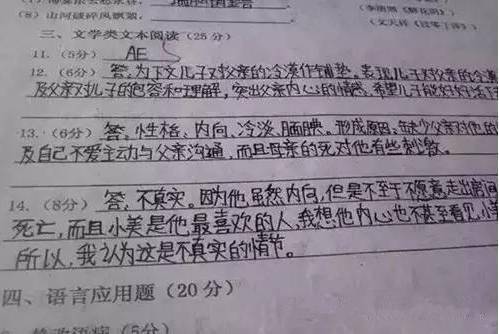 (8) 山河破碎风飘絮,
(文天祥《过零丁洋》)
三、文学类文本阅读(25分)
11.(5分) AE
12.(6分) 答:为下文儿子对父亲的冷漠作铺垫。表现儿子对父亲的冷漠
及父亲对儿子的包容和理解,突出父亲内心的情感,希望儿子能好好
13.(6分) 答:性格:内向、冷淡、腼腆。形成原因:缺少父亲对他的
及自己不爱主动与父亲沟通,而且母亲的死对他有些刺激。
14.(8分) 答:不真实。因为他虽然内向,但是不至于不愿意走出房间
死亡,而且小美是他最喜欢的人,我想他内心也不甚至看见小美
所以,我认为这是不真实的情节。
四、语言应用题(20分)
(5分)